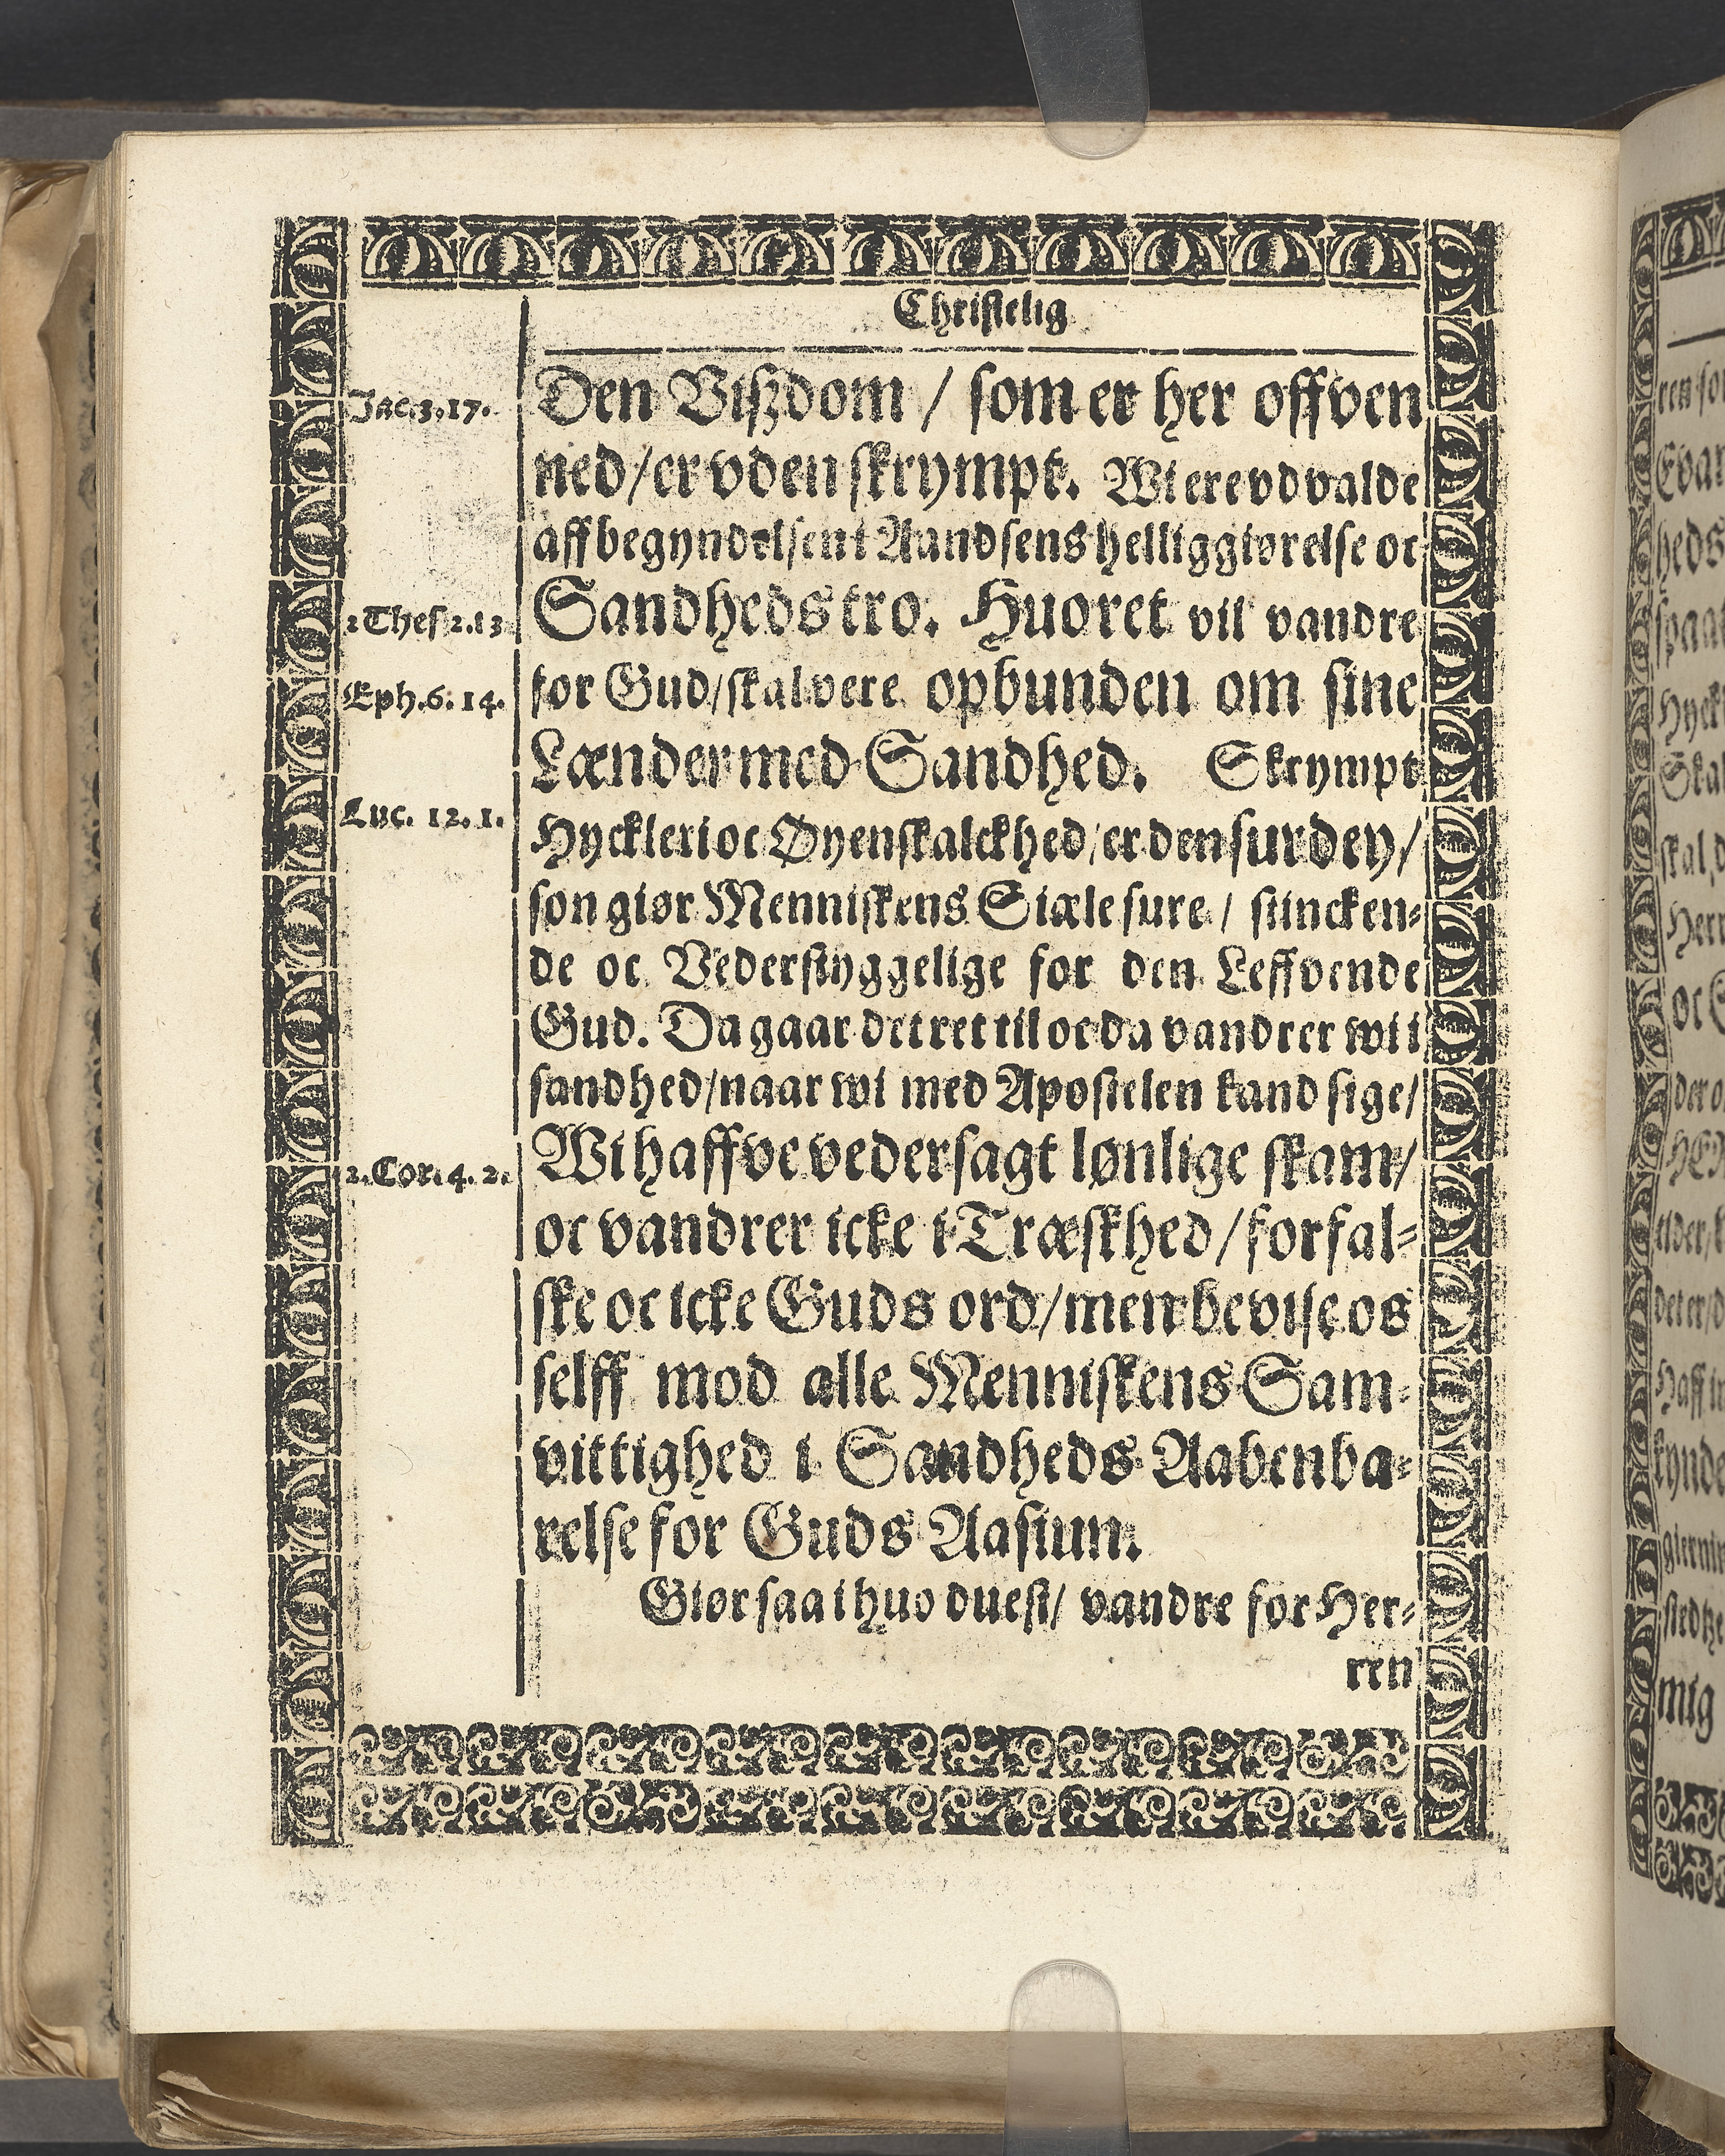 Christelig
Jac.3.17.
Den Viszdom / som er her offven
ned / er vden skrympt. Wi ere vdvalde
aff begyndelsen i Aandsens helliggiørelse oc
2 Thes. 2.13.
Sandheds tro. Huo ret vil vandre
Eph.6. 14.
for Gud / skal vere opbunden om sine
Lænder med Sandhed. Skrympt
Luc. 12. 1.
Hyckleri oc Øyenskalckhed / er den surdey /
son giør Menniskens Siæle sure / stincken-
de oc Vederstyggelige for den Leffvende
Gud. Da gaar det ret til oc da vandrer wi i
sandhed / naar wi med Apostelen kand sige /
2. Cor. 4. 2.
Wi haffve vedersagt lønlige skam /
oc vandrer icke i Træskhed / forfal-
ske oc icke Guds ord / men bevise os
selff mod alle Menniskens Sam-
vittighed i Sandheds Aabenba-
relse for Guds Aasiun.
Giør saa i huo du est / vandre for Her-
ren